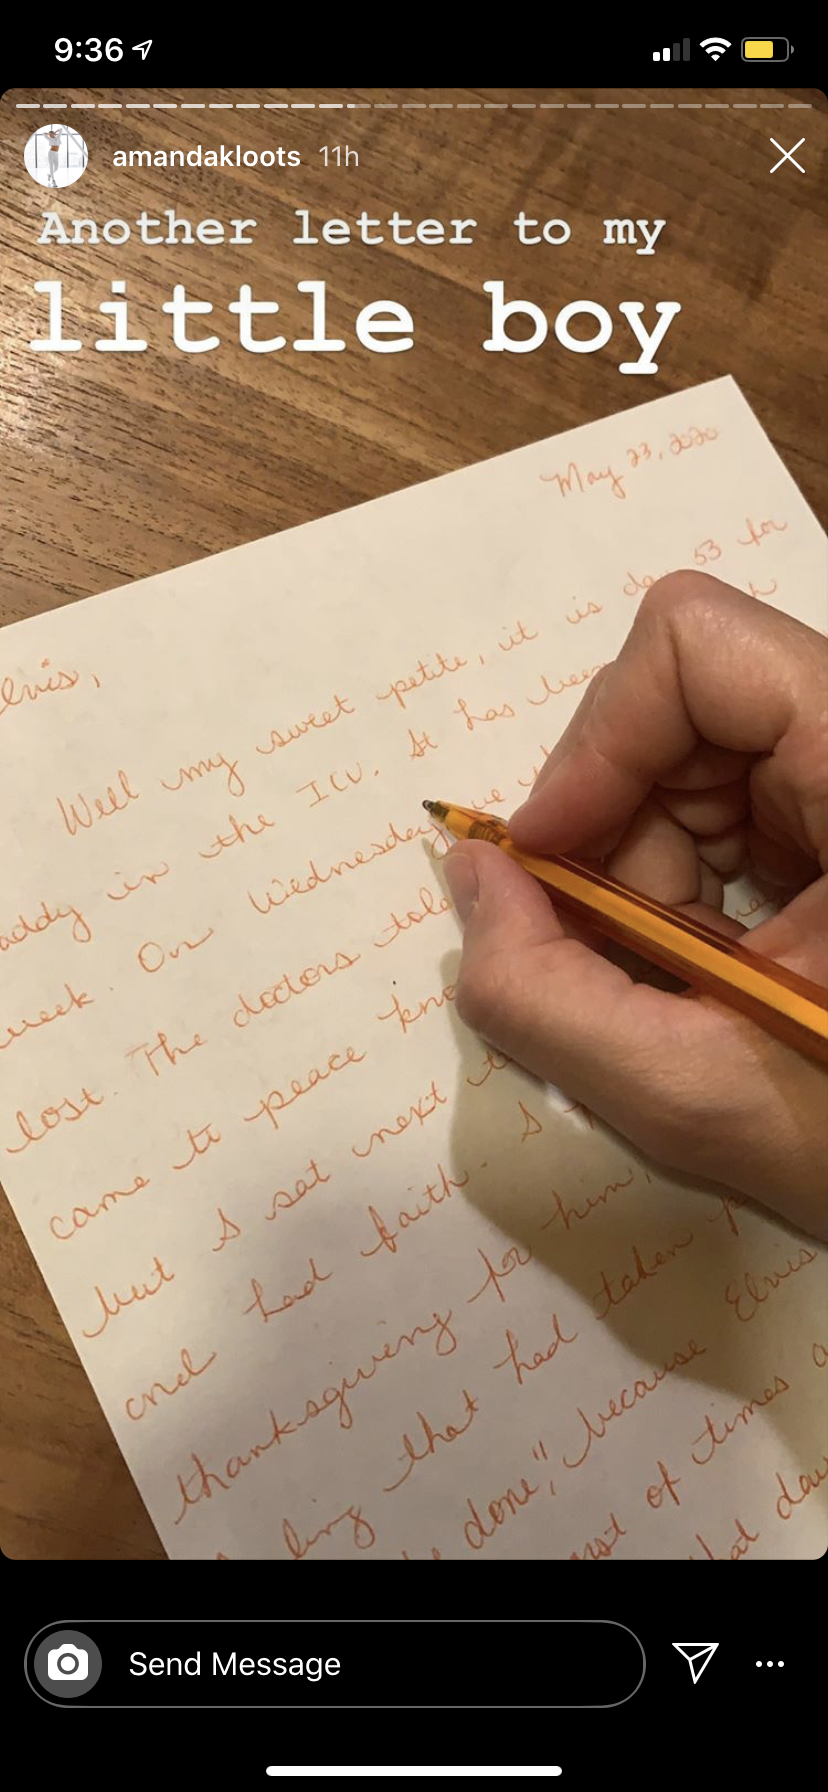 9:36
amandakloots 11h
Another letter to my
little boy
May 23, 2020
Elvis,
Well my sweet petite, it is day 53 for
daddy in the ICU. It has been
week. On Wednesday we
lost. The doctors told
came to peace
but I sat next
and had faith. I
thanksgiving for him,
that had taken
done", because Elvis
of times
Send Message